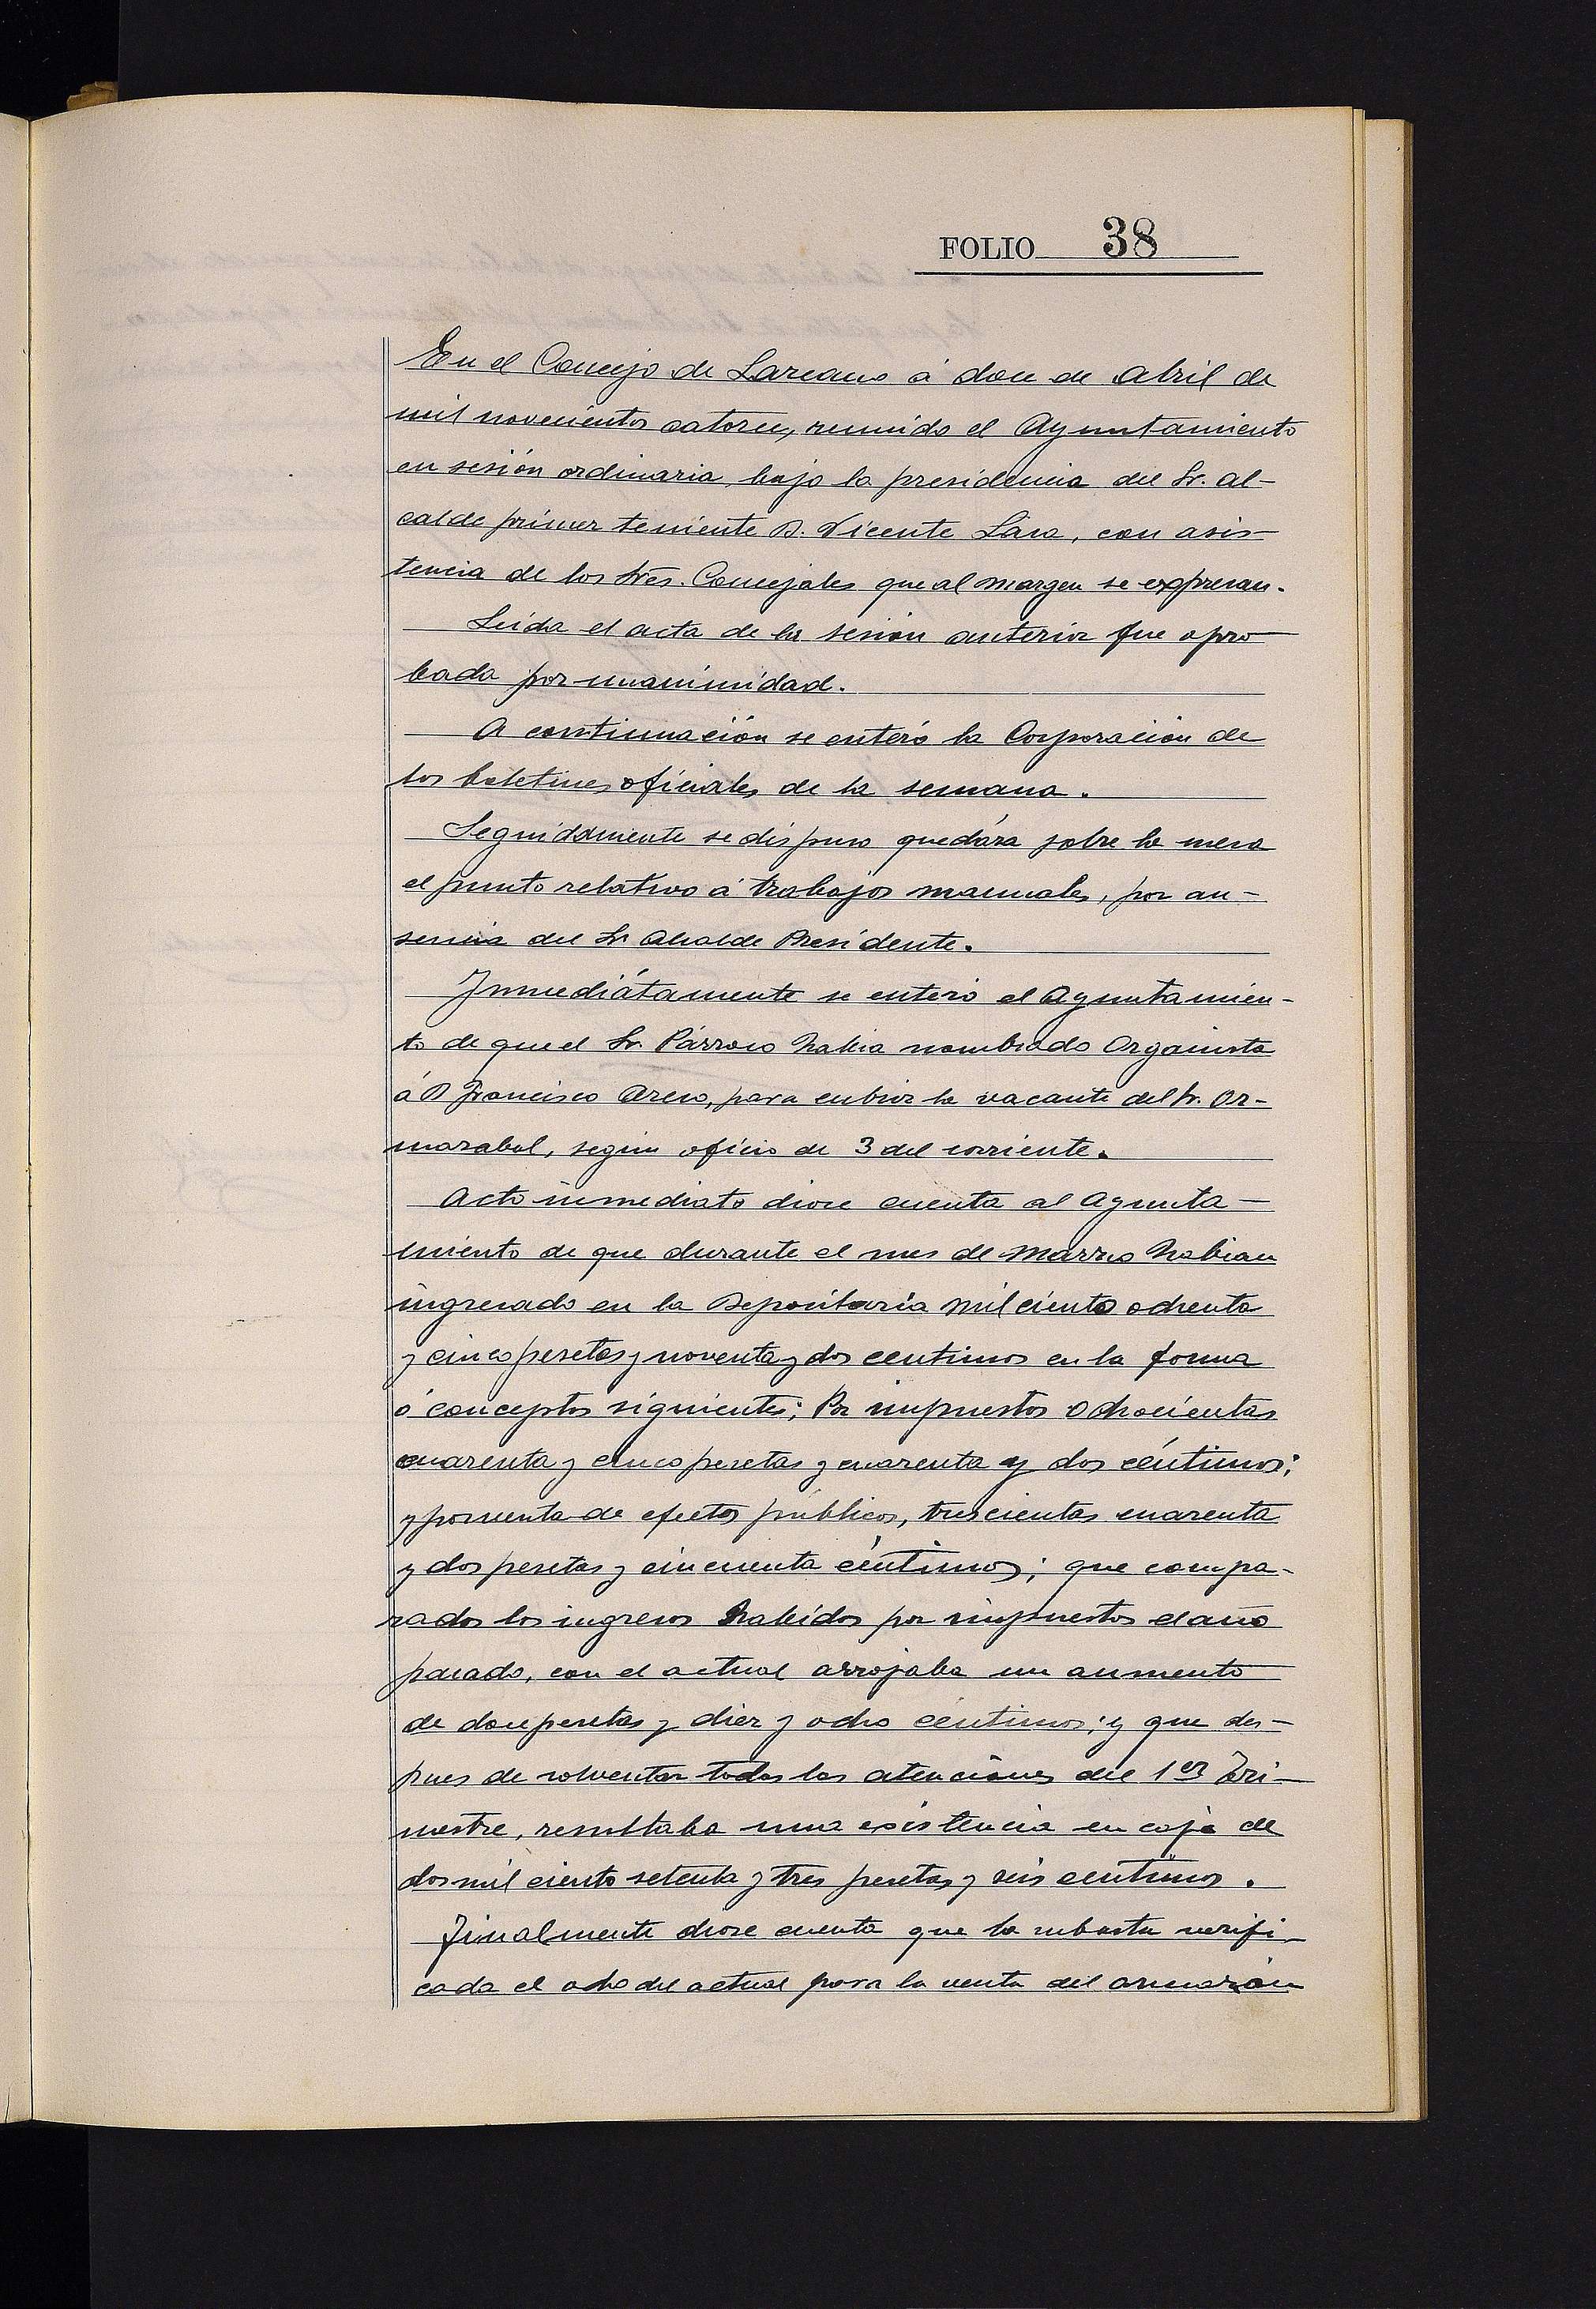 FOLIO 38
En el Concejo de Lazcano á doce de Abril de
mil novecientos catorce, reunido el Ayuntamiento
en sesión ordinaria, bajo la presidencia del Sr. Al-
calde primer teniente D. Vicente Lasa, con asis-
tencia de los Srēs. Concejales que al margen se expresan.
Leida el acta de la sesión anterior fue apro
bada por unanimidad.
A continuación se enteró la Corporación de
los boletines oficiales de la semana.
Seguidamente se dispuso quedára sobre la mesa
el punto relativo á trabajos manuales, por au-
sencia del Sr Alcalde Presidente.
Inmediátamente se enteró el Ayuntamien-
to de que el Sr. Párroco habia nombrado Organista
á D Francisco Areso, para cubrir la vacante del Sr. Or-
mazabal, según oficio de 3 del corriente.
Acto inmediato diose cuenta al Ayunta-
miento de que durante el mes de Marzo habian
ingresado en la Depositaria mil ciento ochenta
y cinco pesetas y noventa y dos centimos en la forma
ó conceptos siguientes; Por impuestos ochocientas
cuarenta y cinco pesetas y cuarenta y dos céntimos;
y por venta de efectos públicos, trescientas cuarenta
y dos pesetas y cincuenta céntimos; que compa-
rados los ingresos habidos por impuestos el año
pasado, con el actual arrojaba un aumento
de doce pesetas y diez y ocho céntimos; y que des-
pues de solventar todas las atenciones del 1er Tri-
mestre, resultaba una existencia en caja de
dos mil ciento setenta y tres pesetas y seis centimos.
Finalmente diose cuenta que la subasta verifi-
cada el ocho del actual para la venta del armazón